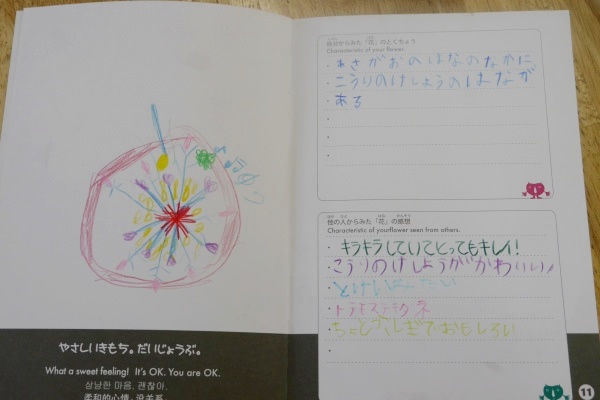 やさしいきもち。だいじょうぶ。
What a sweet feeling! It's OK. You are OK.
상냥한 마음. 괜찮아.
柔和的心情。没关系
自分からみた「花」のとくちょう
Characteristic of your flower.
・あさがおのはなのなかに
・こうりのけしょうのはなが
・ある
他の人からみた「花」の感想
Characteristic of yourflower seen from others.
・キラキラしていてとってもキレイ!
・こうりのけしょうがかわいい♪
・とけいみたい
・トラキステキ
ちょとふしぎでおもしろい
11